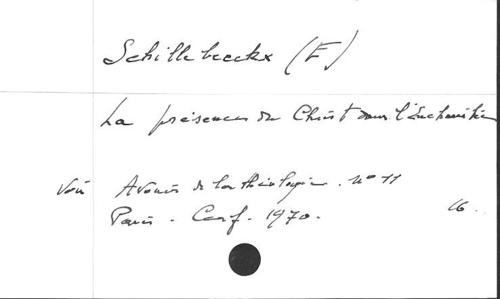 Schillebeeckx (E)
La présence du Christ dans l'Eucharistie
Voir Avenir de la théologie. n° 11
Paris - Cerf. 1970. 16.